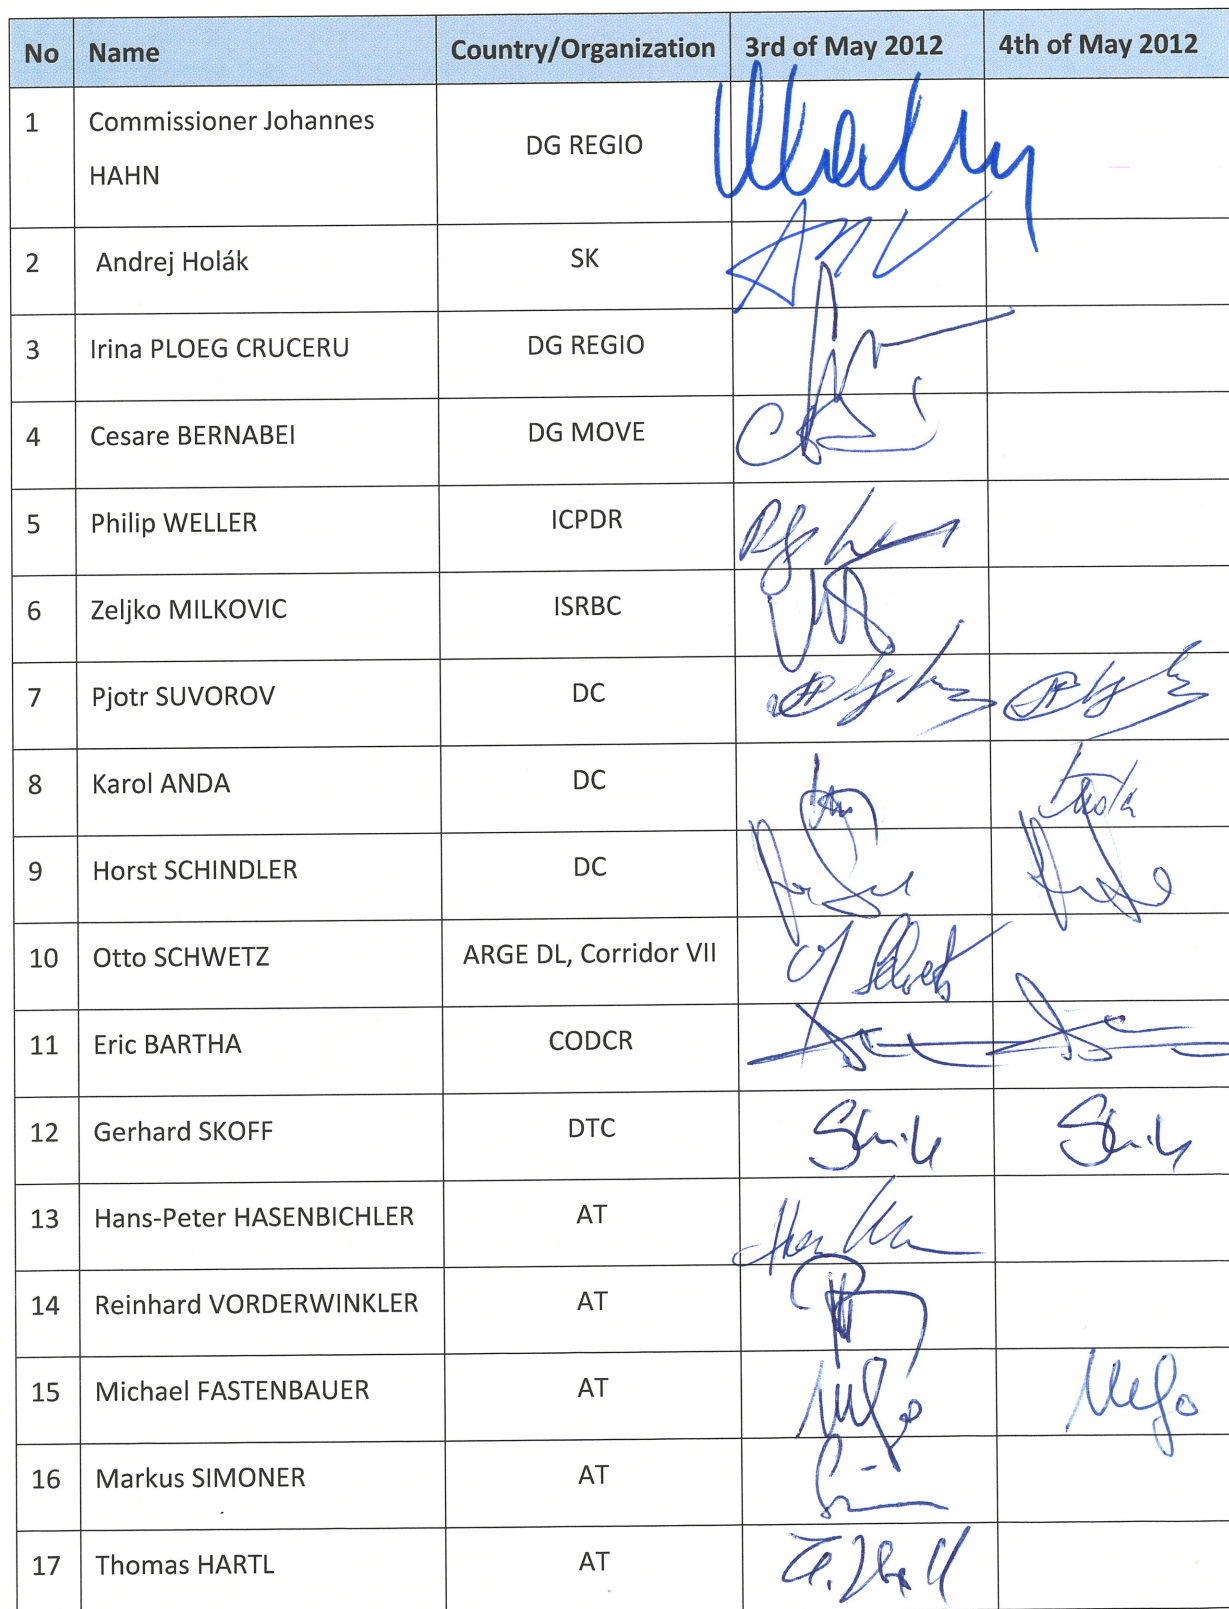 No Name Country/Organization 3rd of May 2012 4th of May 2012
1 Commissioner Johannes
HAHN DG REGIO
2 Andrej Holák SK
3 Irina PLOEG CRUCERU DG REGIO
4 Cesare BERNABEI DG MOVE
5 Philip WELLER ICPDR
6 Zeljko MILKOVIC ISRBC
7 Pjotr SUVOROV DC
8 Karol ANDA DC
9 Horst SCHINDLER DC
10 Otto SCHWETZ ARGE DL, Corridor VII
11 Eric BARTHA CODCR
12 Gerhard SKOFF DTC
13 Hans-Peter HASENBICHLER AT
14 Reinhard VORDERWINKLER AT
15 Michael FASTENBAUER AT
16 Markus SIMONER AT
17 Thomas HARTL AT